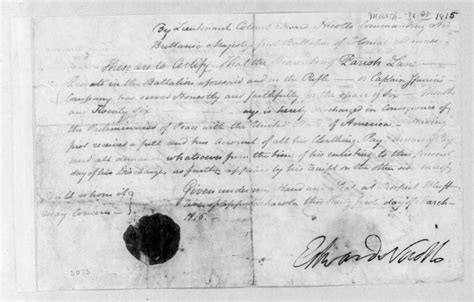 March 31st 1815
By Lieutenant Colonel Edward Nicolls Commanding His
Brittanic Majesty's first Battalion of Colonial Marines
These are to Certify, that the Bearer hereof Parish Lane
Private in the Battalion aforesaid and in the
Company has served Honestly and faithfully for the space of Six Month
and Twenty Six days, is hereby discharged in Consequence of
the Preliminaries of Peace with the United States of America. Having
first received a full and true account of all his Cloathing, Pay, Arrears of Pay
and all demands whatsoever from the time of his enlisting to the present
day of his Discharge, as further appears by his receipt on the other side
to whom it
may Concern
Given under my Hand and Seal at Prospect Bluff
River of Appalachicola this Thirty first day of March
1815.
Edward Nicolls